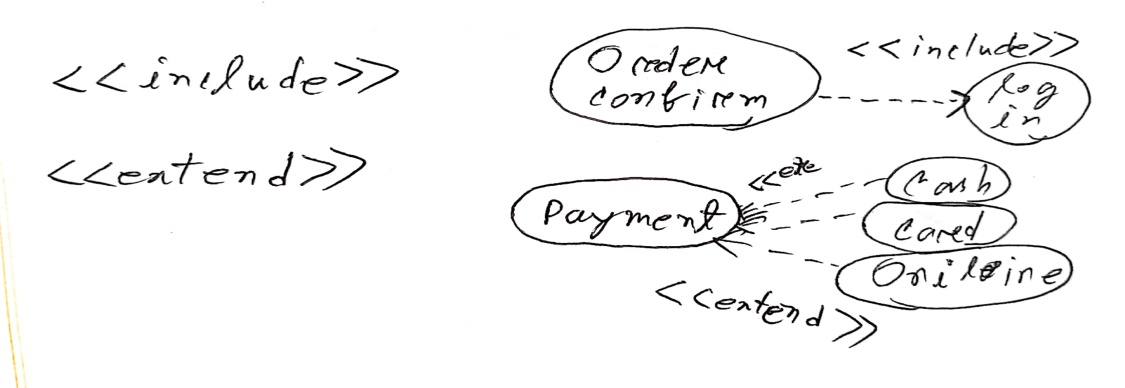 <<include>>
<<extend>>
Order
confirm
<<include>>
Log
in
Payment
<<exte
Cash
Card
Online
<<extend>>